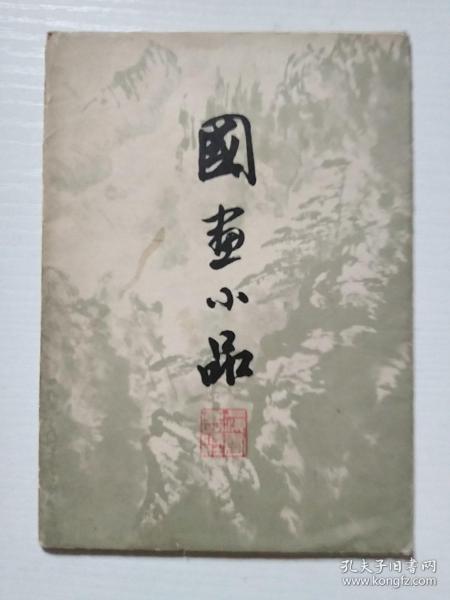 國画小品
孔夫子旧书网
www.kongfz.com